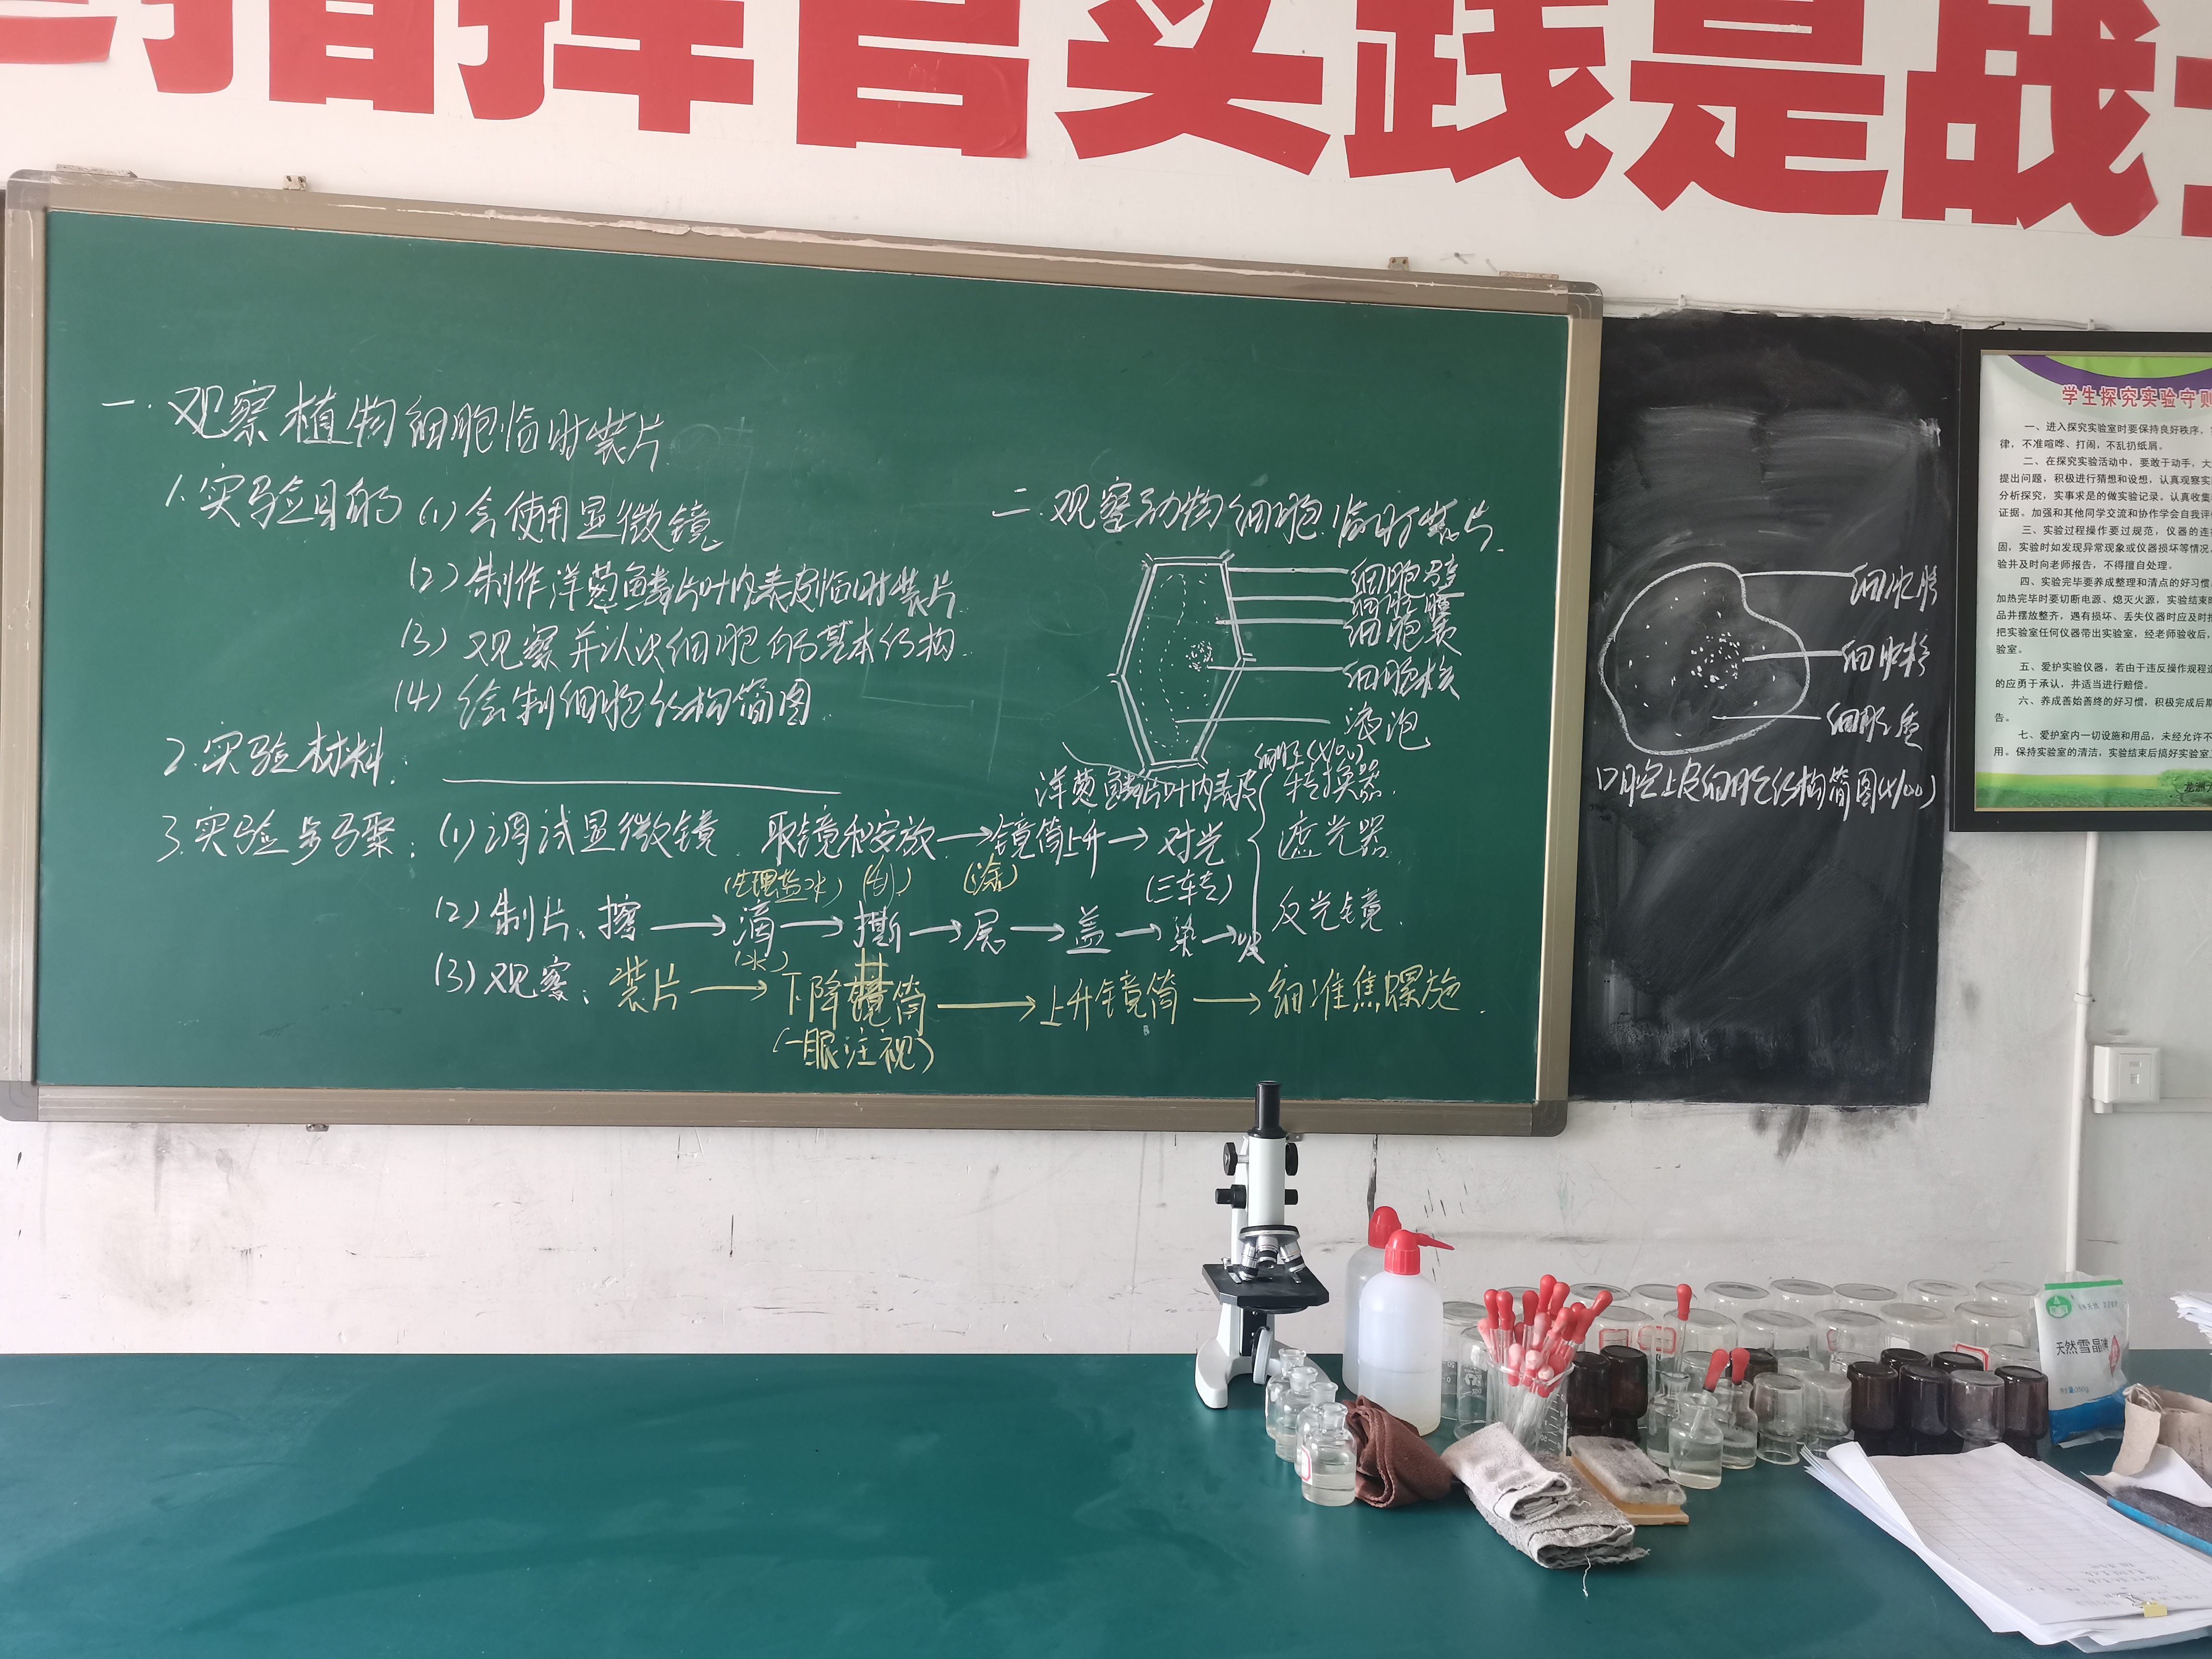 指挥官实践是战
一.观察植物细胞临时装片
1.实验目的 (1)会使用显微镜
(2)制作洋葱鳞片叶内表皮临时装片
(3)观察并认识细胞的基本结构.
(4)绘制细胞结构简图.
2.实验材料:
3.实验步骤: (1)调试显微镜 取镜和安放→镜筒上升→对光
转换器.
遮光器
反光镜.
(生理盐水) (刮) (涂) (三车专)
(2)制片: 擦→滴→撕→展→盖→染→吸
(水)
(3)观察: 装片→下降镜筒→上升镜筒→细准焦螺旋.
(一眼注视)
二.观察动物细胞临时装片.
细胞壁
细胞膜
细胞核
液泡
洋葱鳞片叶内表皮
细胞膜
细胞核
细胞质
口腔上皮细胞结构简图(x100)
学生探究实验守则
一、进入探究实验室时要保持良好秩序,
律,不准喧哗、打闹,不乱扔纸屑。
二、在探究实验活动中,要敢于动手,大
提出问题,积极进行猜想和设想,认真观察实
分析探究,实事求是的做实验记录。认真收集
证据。加强和其他同学交流和协作学会自我评
三、实验过程操作要过规范,仪器的连
固,实验时如发现异常现象或仪器损坏等情况
验并及时向老师报告,不得擅自处理。
四、实验完毕要养成整理和清点的好习惯
加热完毕时要切断电源、熄灭火源,实验结束时
品并摆放整齐,遇有损坏、丢失仪器时应及时
把实验室任何仪器带出实验室,经老师验收后,
验室。
五、爱护实验仪器,若由于违反操作规程造
的应勇于承认,并适当进行赔偿。
六、养成善始善终的好习惯,积极完成后期
告。
七、爱护室内一切设施和用品,未经允许不
用。保持实验室的清洁,实验结束后搞好实验室
龙洲
天然雪晶